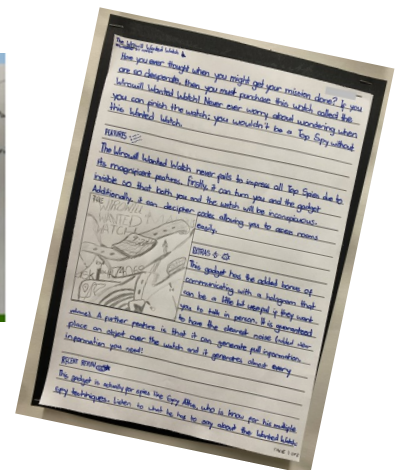 The Wrowll Wanted Watch
Have you ever thought when you might get your mission done? If you
are so desperate, then you must purchase this watch called the
Wrowll Wanted Watch! Never ever worry about wondering when
you can finish the watch; you wouldn't be a Top Spy without
this Wanted Watch.
FEATURES
The Wrowll Wanted Watch never fails to impress all Top Spies due to
its magnificent features. Firstly, it can turn you and the gadget
invisible so that both you and the watch will be inconspicuous.
Additionally, it can decipher codes allowing you to access rooms
easily.
THE
WANTED
WATCH
EXTRAS
This gadget has the added bonus of
communicating with a hologram that
can be a little bit useful if they want
you to talk in person. It is guaranteed
to have the clearest noise
A further feature is that it can generate full information.
place an object over the watch and it generates almost every
information you need!
RECENT REVIEW
This gadget is actually for spies like Spy who is know for his multiple
spy techniques. Listen to what he has to say about the Wanted Watch.
PAGE 1 OF 2